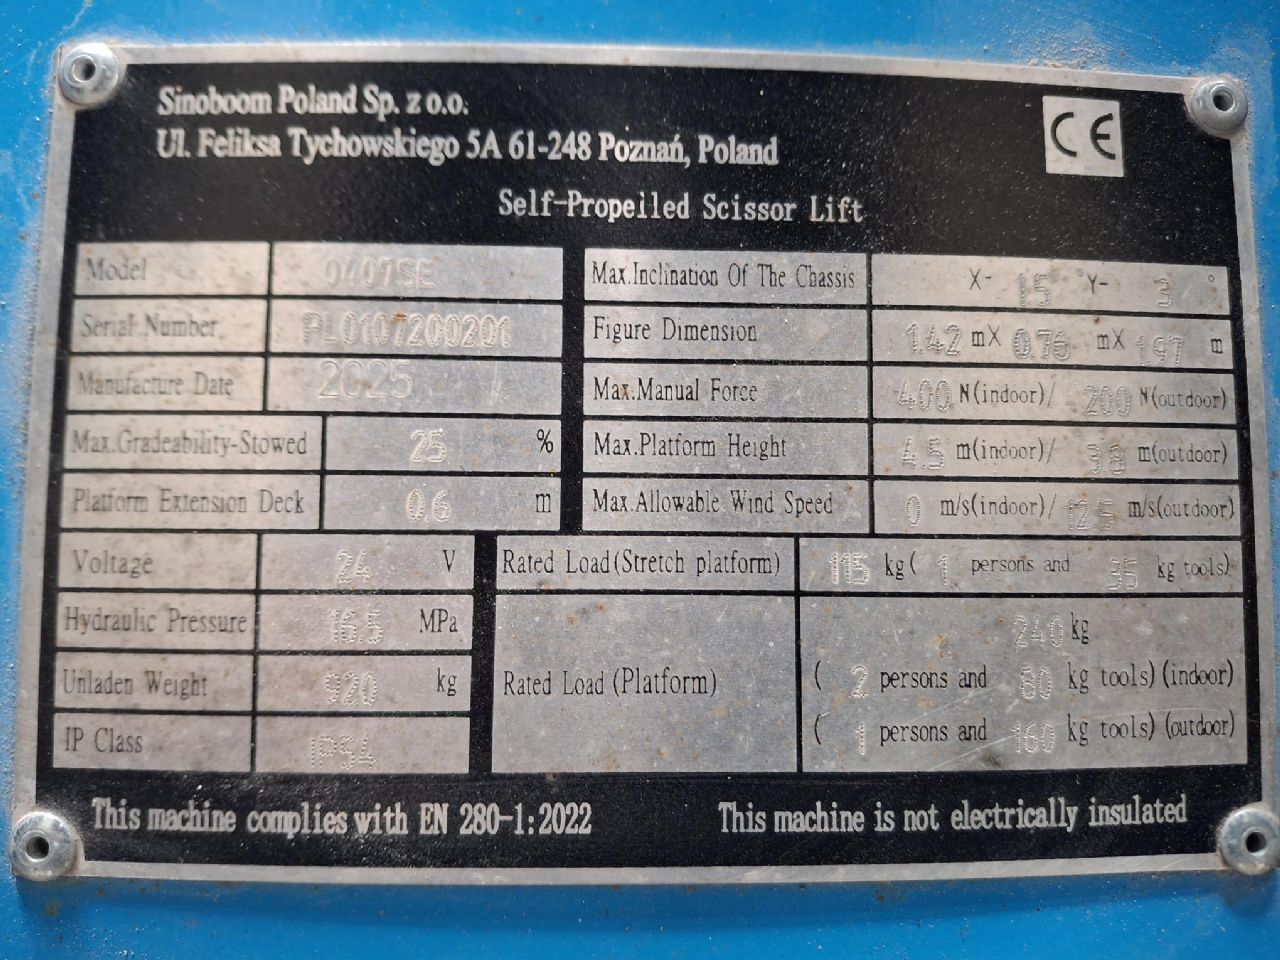 Sinoboom Poland Sp. z o.o.
Ul. Feliksa Tychowskiego 5A 61-248 Poznań, Poland
CE
Self-Propelled Scissor Lift
Model 0407SE
Serial Number PL0107200201
Manufacture Date 2025
Max.Gradeability-Stowed 25 %
Platform Extension Deck 0.6 m
Max.Inclination Of The Chassis X- 1.5 ° Y- 3 °
Figure Dimension 1.42 mX 0.76 mX 1.97 m
Max.Manual Force 400 N(indoor)/ 200 N(outdoor)
Max.Platform Height 4.5 m(indoor)/ 3.8 m(outdoor)
Max.Allowable Wind Speed 0 m/s(indoor)/ 12.5 m/s(outdoor)
Voltage 24 V
Hydraulic Pressure 16.5 MPa
Unladen Weight 920 kg
IP Class IP54
Rated Load(Stretch platform) 115 kg( 1 persons and 35 kg tools)
Rated Load(Platform) 240 kg
( 2 persons and 80 kg tools)(indoor)
( 1 persons and 160 kg tools)(outdoor)
This machine complies with EN 280-1:2022
This machine is not electrically insulated